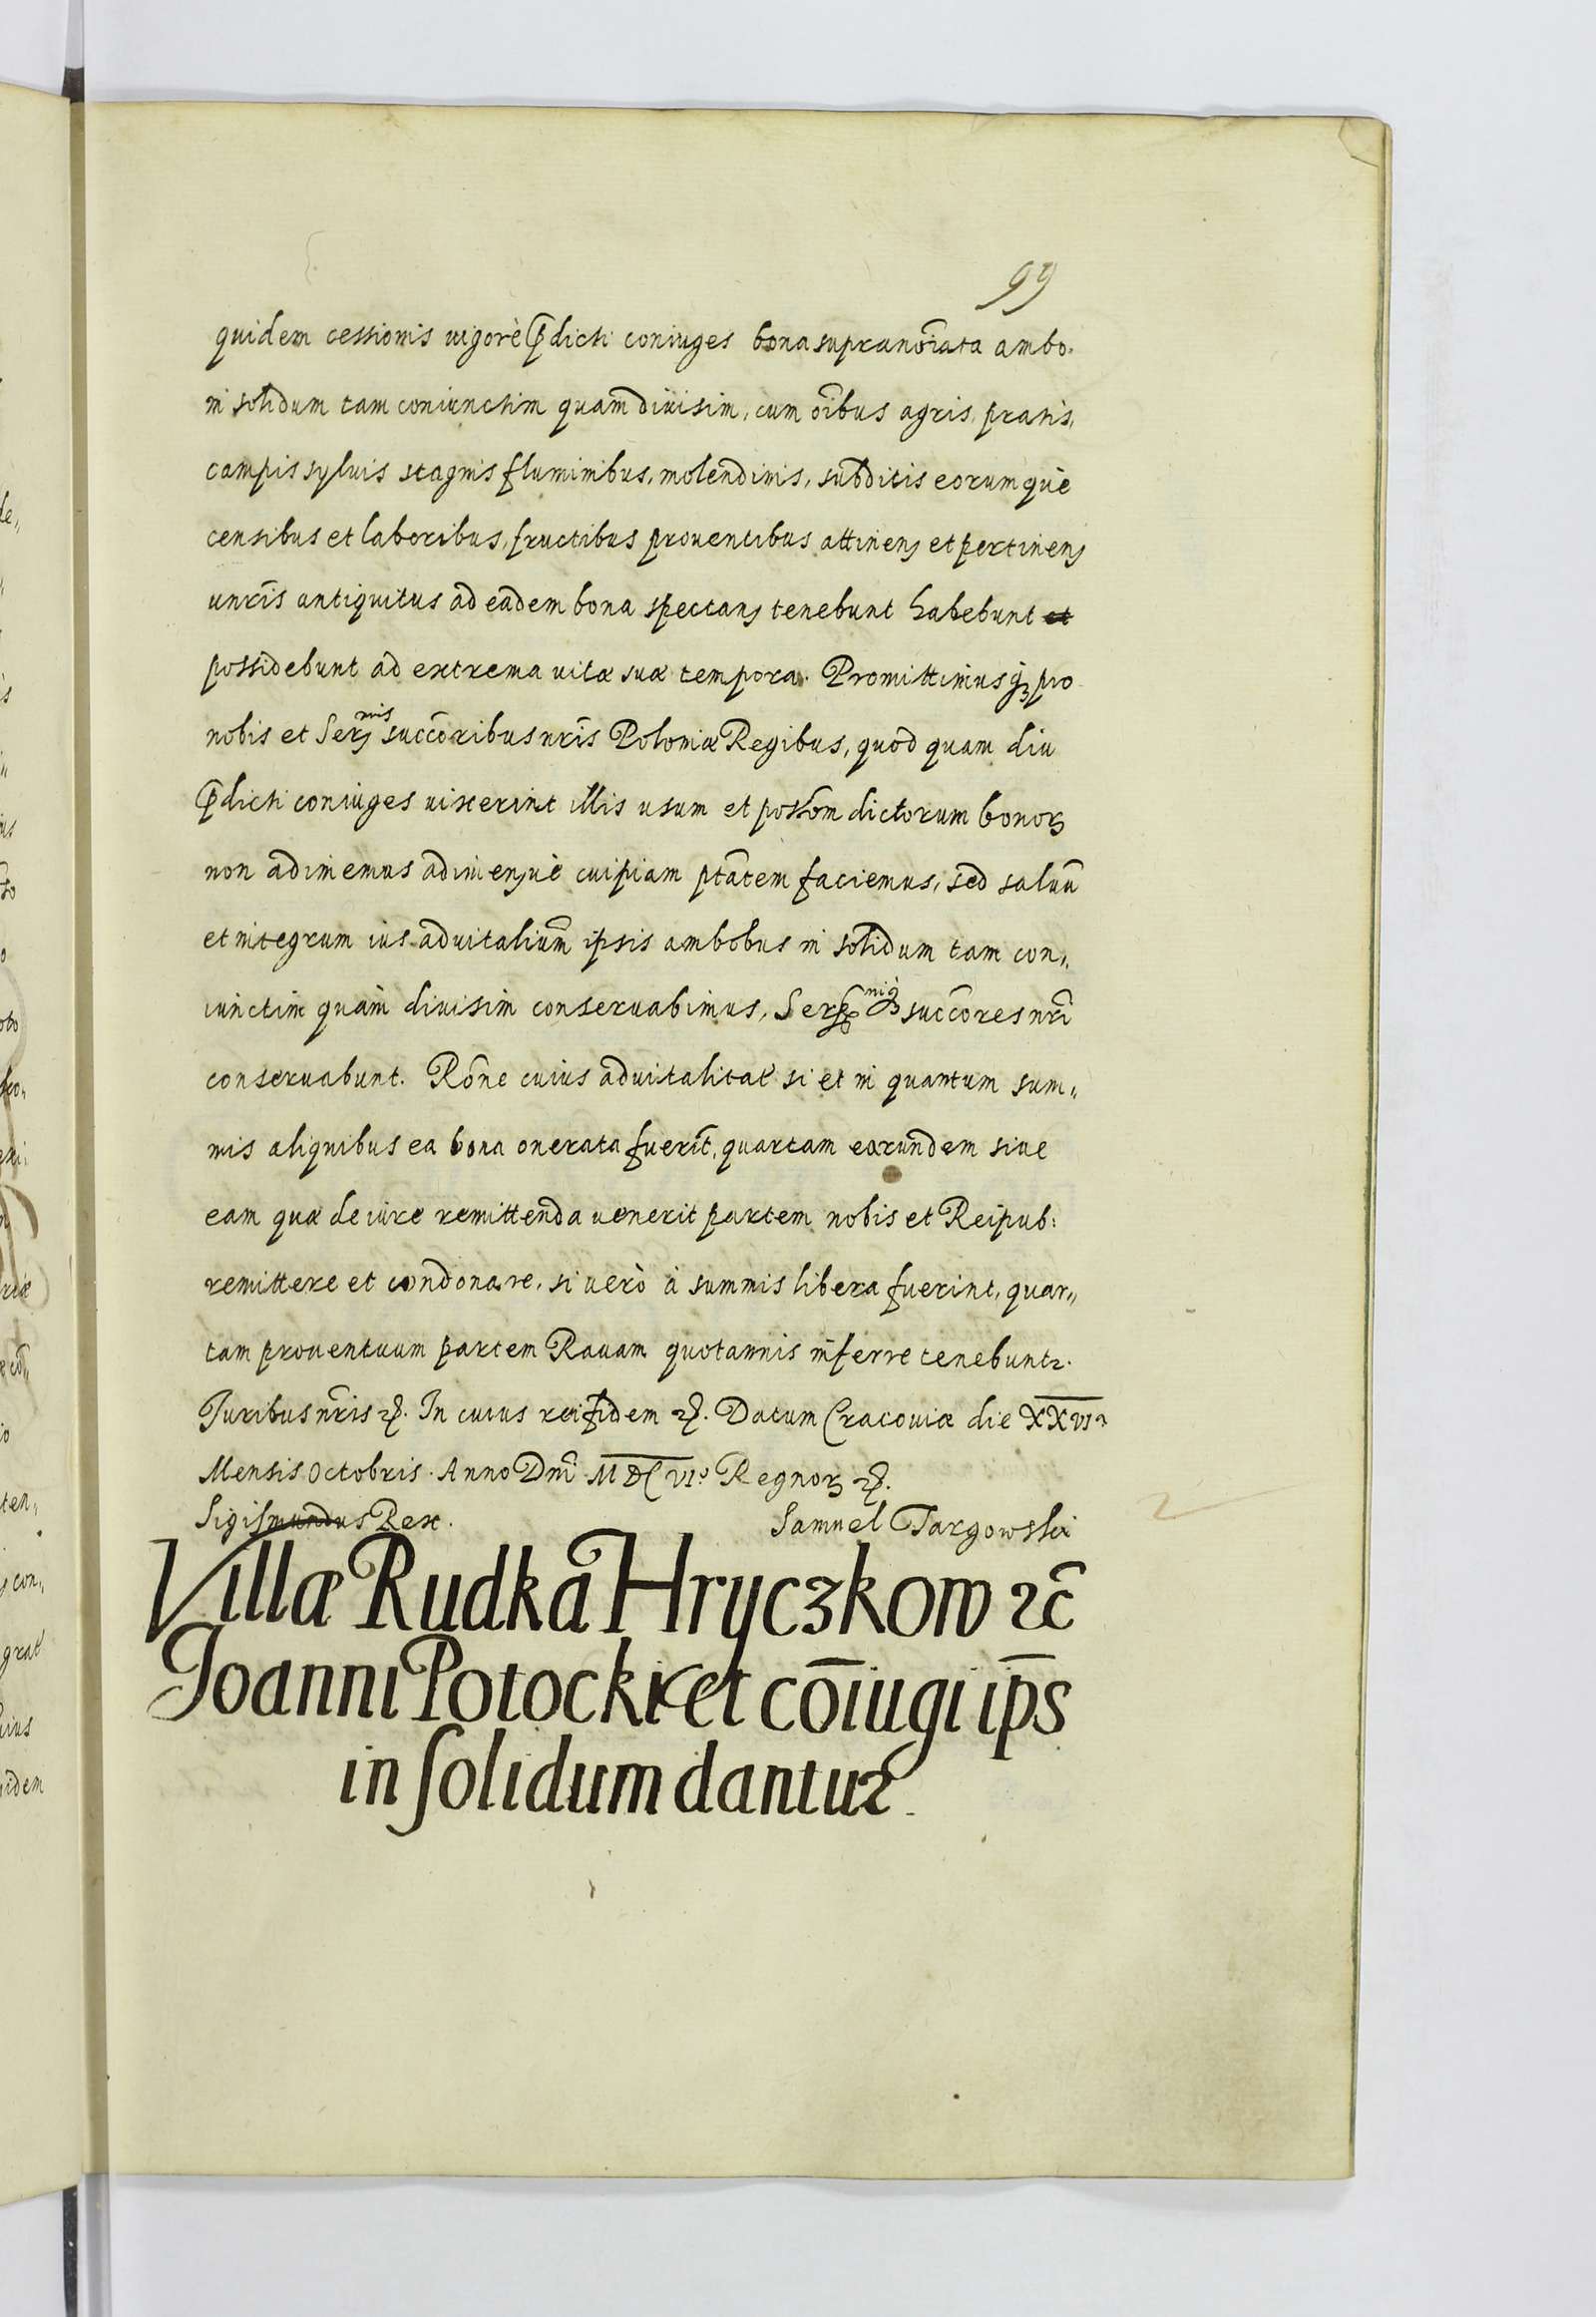 99
quidem cessionis vigorè p̄dicti coniuges bona supranoĩata ambo
in solidum tam coniunctim quam divisim, cum oĩbus agris, pratis,
campis sylvis stagnis fluminibus, molendinis, subditis eorumquè
censibus et laboribus, fructibus proventibus attinenꝭ et pertinenꝭ
unr̃is antiquitus ad eadem bona spectanꝭ tenebunt habebunt et
possidebunt ad extrema vitæ suæ tempora. Promittimusqꝫ pro
nobis et Serꝭmis succõribus nr̃is Poloniæ Regibus, quod quam diu
p̄dicti coniuges vixerint illis usum et possõm dictorum bonoꝝ
non adimemus adimenꝭvè cuipiam ptãtem faciemus, sed salvũ
et integrum ius advitalium ipsis ambobus in solidum tam con„
iunctim quam divisim conservabimus, Serꝭmiqꝫ succõres nr̃i
conservabunt. Rõne cuius advitalitat̃ si et in quantum sum„
mis aliquibus ea bona onerata fuerĩt, quartam earundem sive
eam quæ de iure remittenda venerit partem nobis et Reipub:
remittere et condonare, si verò à summis libera fuerint, quar„
tam proventuum partem Ravam quotannis inferre tenebuntꝛ.
Juribus nr̃is ꝛc̃. In cuius rei fidem ꝛc̃. Datum Cracoviæ die XXVIa
Mensis Octobris. Anno Dnĩ MDCVIo Regnoꝝ ꝛc̃.
Sigismundus Rex. Samuel Targowski
Villæ Rudka Hryczkow ꝛc̃
Joanni Potocki et cōiugi ip̄s
in solidum dantuꝛ.